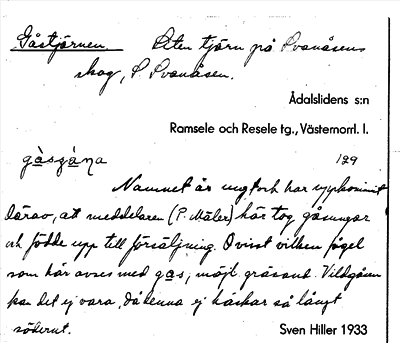 Gåstjärnen Liten tjärn på Svanåsens
skog, S. Svanåsen.
Ådalslidens s:n
Ramsele och Resele tg., Västernorrl. l.
gàsʒàna 129
Namnet är ungt och har uppkommit
därav, att meddelaren (P. Mäler) här tog gåsungar
och födde upp till försäljning. Ovisst vilken fågel
som här avses med gås, möjl. gräsand. Vildgåsen
kan det ej vara, då denna ej häckar så långt
söderut. Sven Hiller 1933